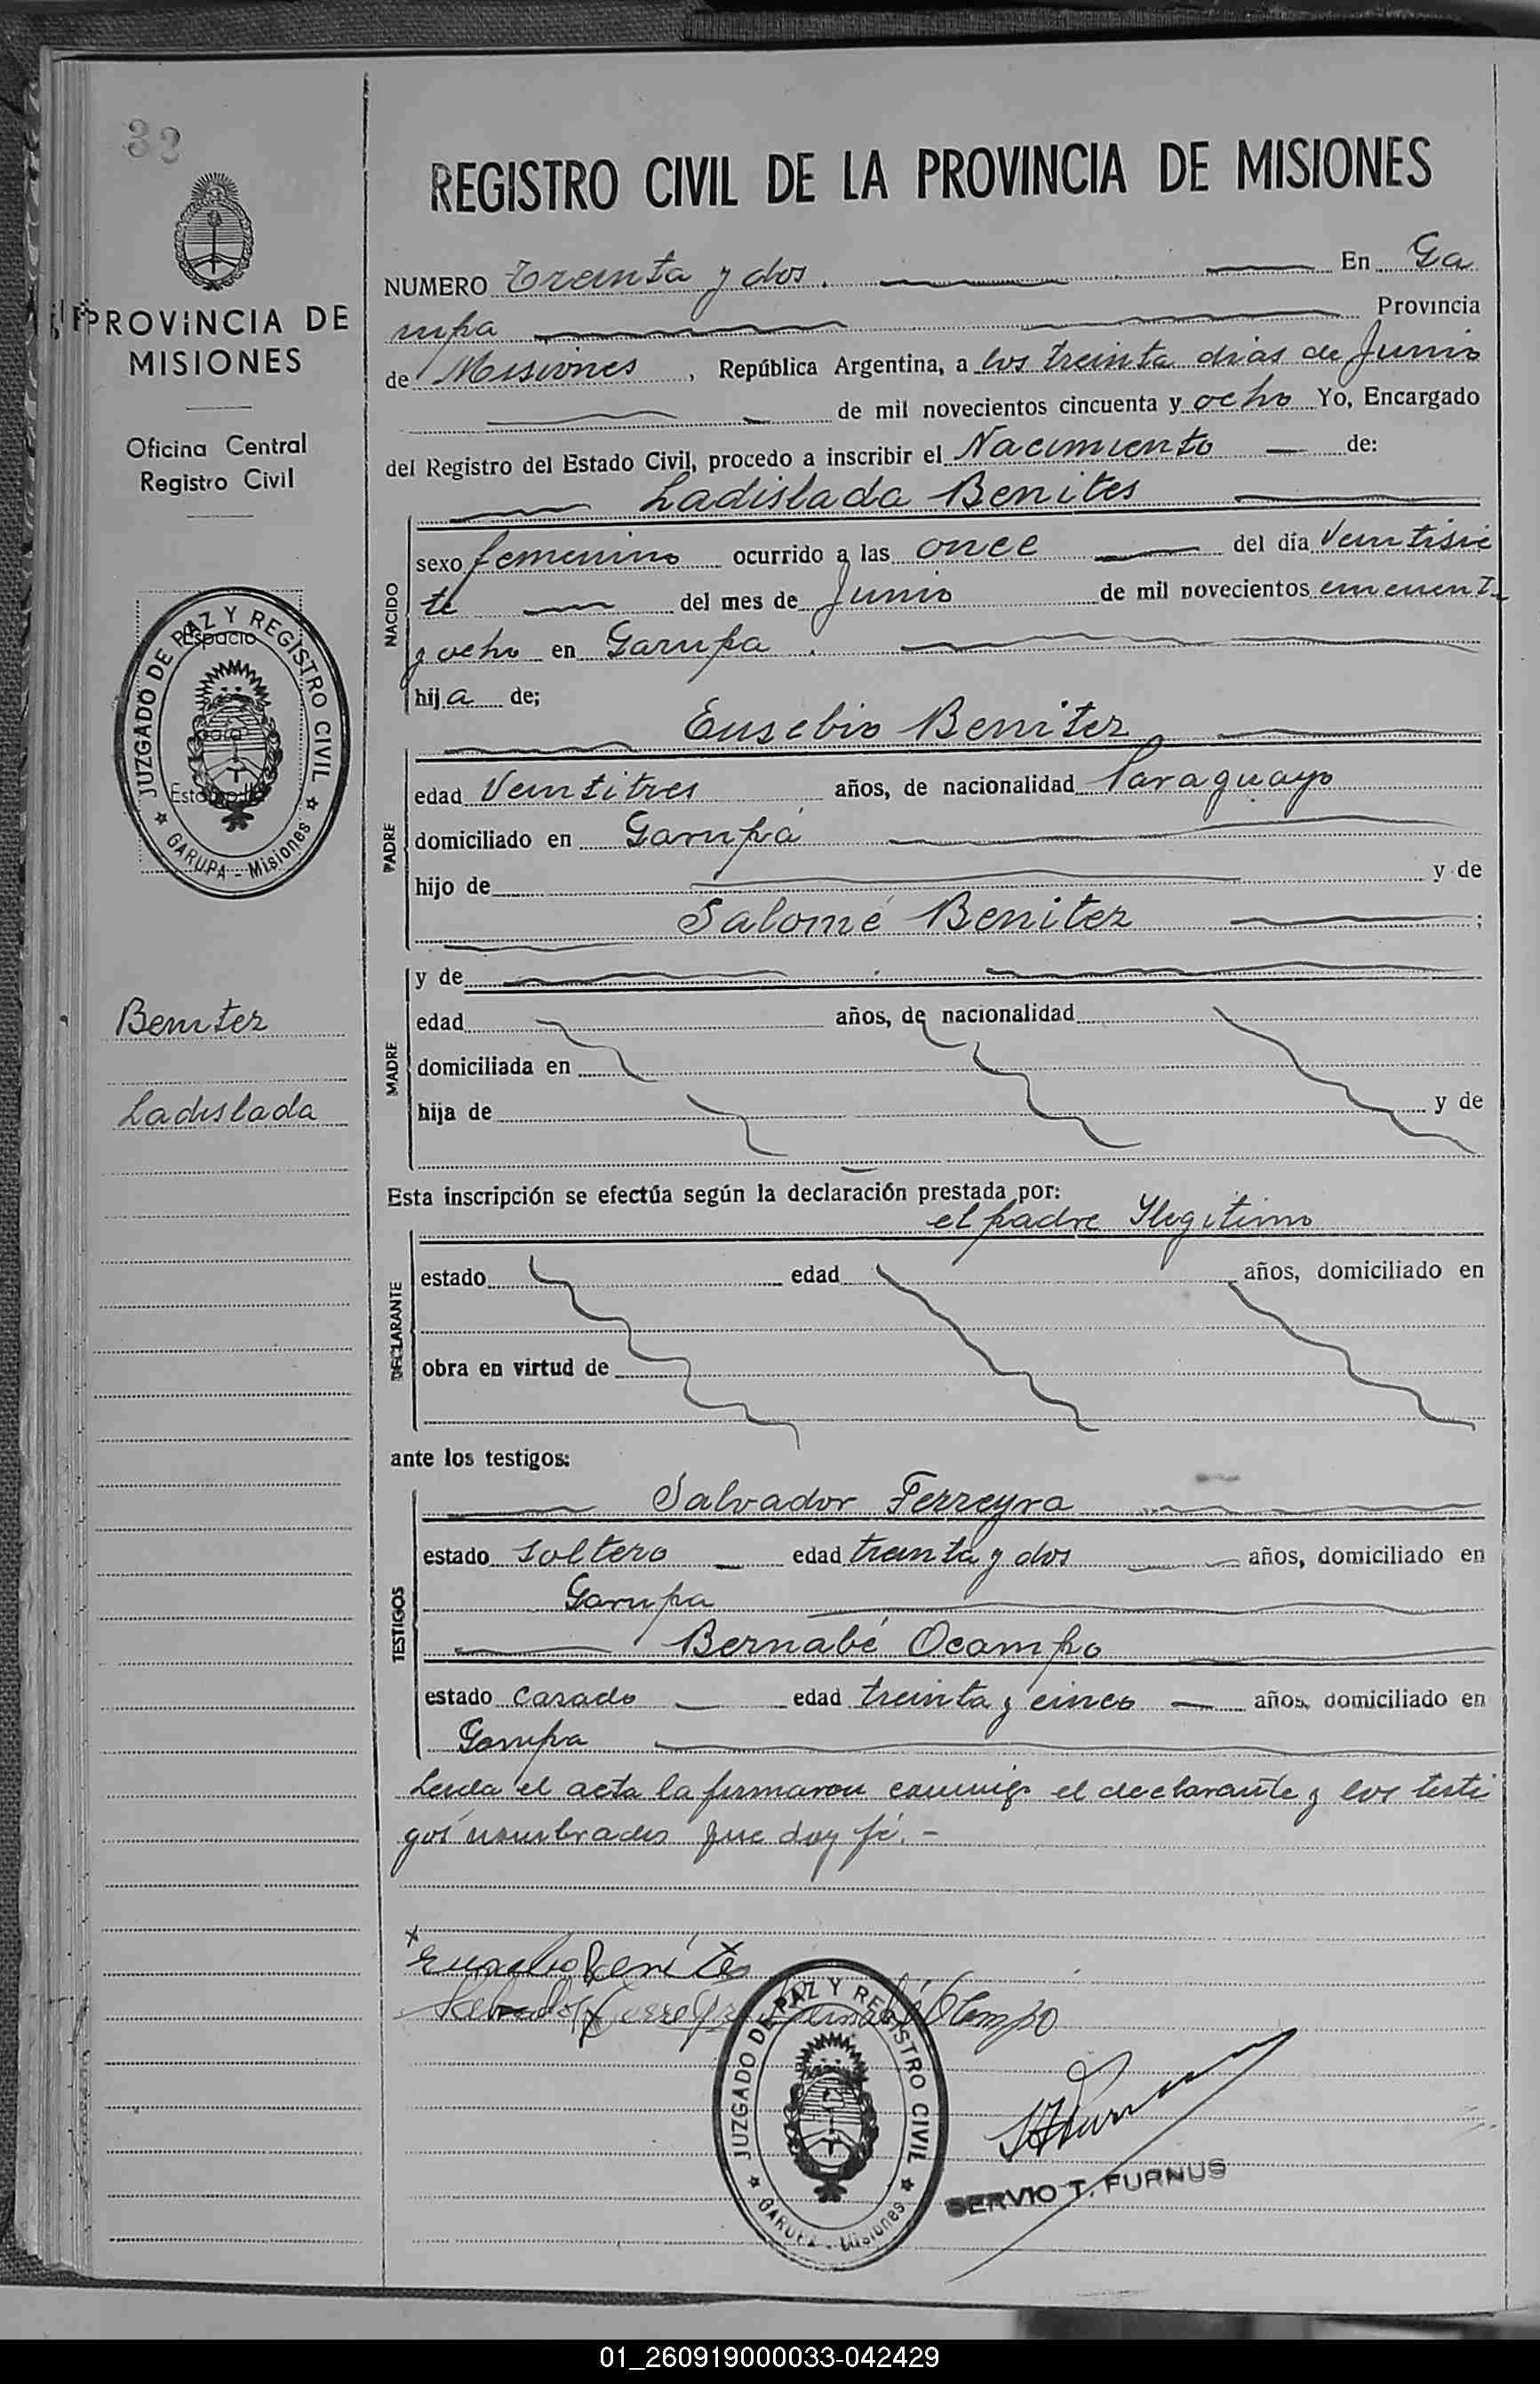 32
PROVINCIA DE
MISIONES
Oficina Central
Registro Civil
JUZGADO DE PAZ Y REGISTRO CIVIL
GARUPA - Misiones
Espacio
para
Estampilla
Benitez
Ladislada
REGISTRO CIVIL DE LA PROVINCIA DE MISIONES
NUMERO Treinta y dos. En Ga
rupa Provincia
de Misiones, República Argentina, a los treinta dias de Junio
de mil novecientos cincuenta y ocho Yo, Encargado
del Registro del Estado Civil, procedo a inscribir el Nacimiento de:
Ladislada Benites
NACIDO
sexo femenino ocurrido a las once del día Veintisie
te del mes de Junio de mil novecientos cincuenta
y ocho en Garupa.
hija de;
Eusebio Benitez
PADRE
edad Veintitres años, de nacionalidad Paraguayo
domiciliado en Garupá
hijo de y de
Salomé Benitez ;
MADRE
y de
edad años, de nacionalidad
domiciliada en
hija de y de
Esta inscripción se efectúa según la declaración prestada por:
el padre Ilegitimo
DECLARANTE
estado edad años, domiciliado en
obra en virtud de
ante los testigos:
TESTIGOS
Salvador Ferreyra
estado Soltero edad treinta y dos años, domiciliado en
Garupa
Bernabé Ocampo
estado Casado edad treinta y cinco años, domiciliado en
Garupa
Leida el acta la firmaron conmigo el declarante y los testi
gos nombrados que doy fé.-
x
Eusebio Benítes
Salvador Ferreyra Bernabé Ocampo
JUZGADO DE PAZ Y REGISTRO CIVIL
GARUPA - Misiones
SERVIO T. FURNUS
01_260919000033-042429